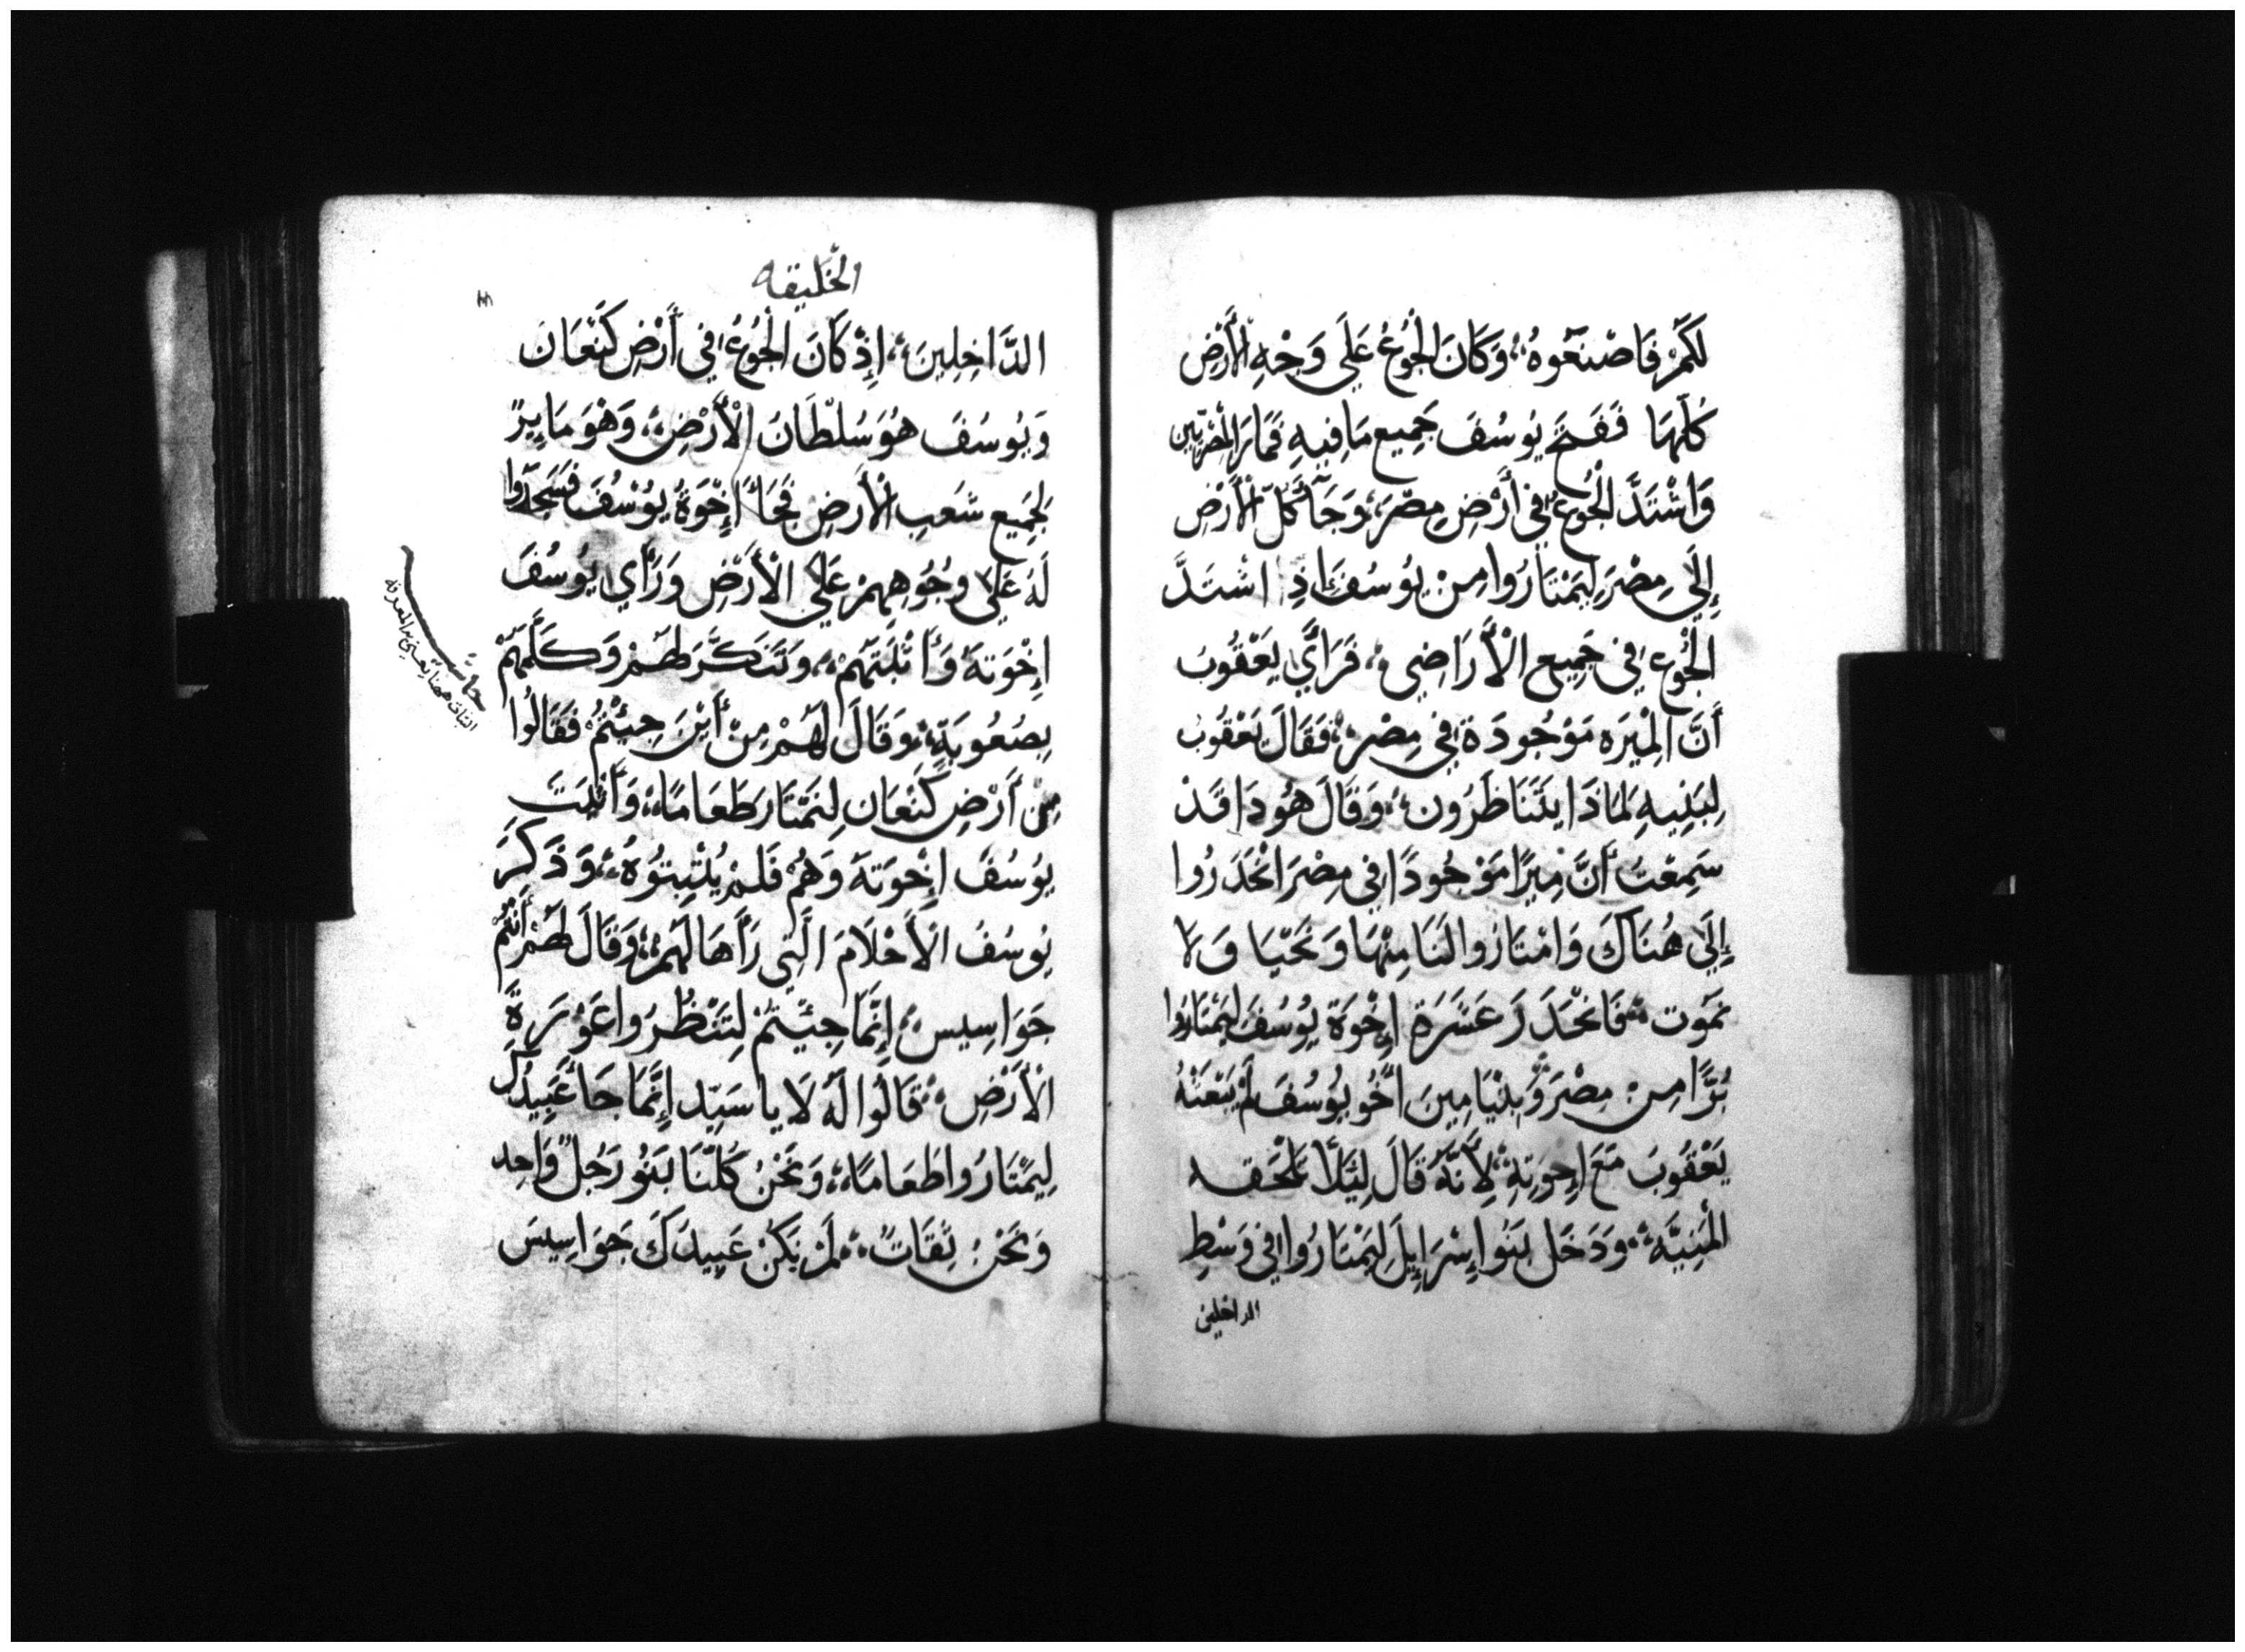 لَكُمْ فَاصْنَعُوهُ، وَكَانَ الْجُوعُ عَلَى وَجْهِ الْأَرْضِ
كُلِّهَا فَفَتَحَ يُوسُفَ جَمِيع مَا فِيهِ فَمَارَ الْمِصْرِيّين
وَاشْتَدَّ الْجُوعُ فِي أَرْضِ مِصْرَ، وَجَآءَ كُلّ الْأَرْضِ
إِلَي مِصْرَ لِيَمْتَارُوا مِنْ يُوسُفَ إِذِ اشْتَدَّ
الْجُوعُ فِي جَمِيعِ الْأَرَاضِي، فَرَاَي يَعْقُوبَ
أَنَّ الْمِيرَه مَوْجُودَة فِي مِصْرَ، فَقَالَ يَعْقُوبُ
لِبَنِيهِ لِمَاذَا يَتَنَاظَرُون، وَقَالَ هُوَذَا قَدْ
سَمِعْتُ أَنَّ مِيرًا مَوْجُودًا فِي مِصْرَ انْحَدَرُوا
إِلَى هُنَاكَ وَامْتَارُوا لَنَا مِنْهَا وَنَحْيَا وَلا
نَمُوت، فَانْحَدَرَ عَشَرَة إِخْوَة يُوسُفَ لِيَمْتَارُوا
بُرًّا مِن مِصْرَ، وَبِنْيَامِينَ أَخُو يُوسُفَ لَمْ يَبْعَثْهُ
يَعْقُوبَ مَعَ إِخْوَتِهِ، لِأَنَّهُ قَالَ لِئَلَّا تَلْحَقه
الْمَنِيَّه، وَدَخَل بَنُوا إِسْرَايِلَ لِيَمْتَارُوا فِي وَسْطِ
الداخلين
الخليقه
الدَّاخِلِينَ، إِذْ كَانَ الْجُوعُ فِي أَرْضِ كَنْعَانَ
وَيُوسُفَ هُوَ سُلْطَانَ الْأَرْضِ، وَهْوَ مَايِرٌ
لِجَمِيعِ شَعبِ الْأَرضِ فَجَاءَ إِخْوَةُ يُوسُفَ فَسَجَدُوا
لَهُ عَلَى وُجُوهِهِمْ عَلَي الْأَرْضِ وَرَأي يُوسُفَ
اِخْوَتَهُ وَأَثْبَتَهُمْ، وَتَنَكَّرَ لَهُمْ وَكَلَّمَهُمْ
بِصُعُوبَةٍ، وَقَالَ لَهُمْ مِنْ أَيْنَ جِيْتُمْ فَقَالُوا
مِنْ أَرْضِ كَنْعَان لِنَمْتَار طَعَامًا، وَأَثْبَتَ
يُوسُفَ إِخْوَتَهُ وَهُمْ فَلَمْ يُثْبِتُوهُ، وَذَكَرَ
يُوسُفَ الْأَحْلَامَ الَّتِي رَأَهَا لَهُمْ، وَقَالَ لَهُمْ أَنْتُمْ
جَوَاسِيس، إِنَّمَا جِئْتُمْ لِتَنْظُرُوا عَوْرَةِ
الْأَرْضِ، قَالُوا لَهُ لَا يا سَيِّد إِنَّمَا جَاءَ عَبِيدُكَ
لِيَمْتَارُوا طَعَامًا، وَنَحْنُ كُلُّنَا بَنُو رَجُلٍ وَاحِد
وَنَحْنُ ثِقَاتٌ، لَمْ نَكُنْ عَبِيدَكَ جَوَاسِيسَ
حاشيه